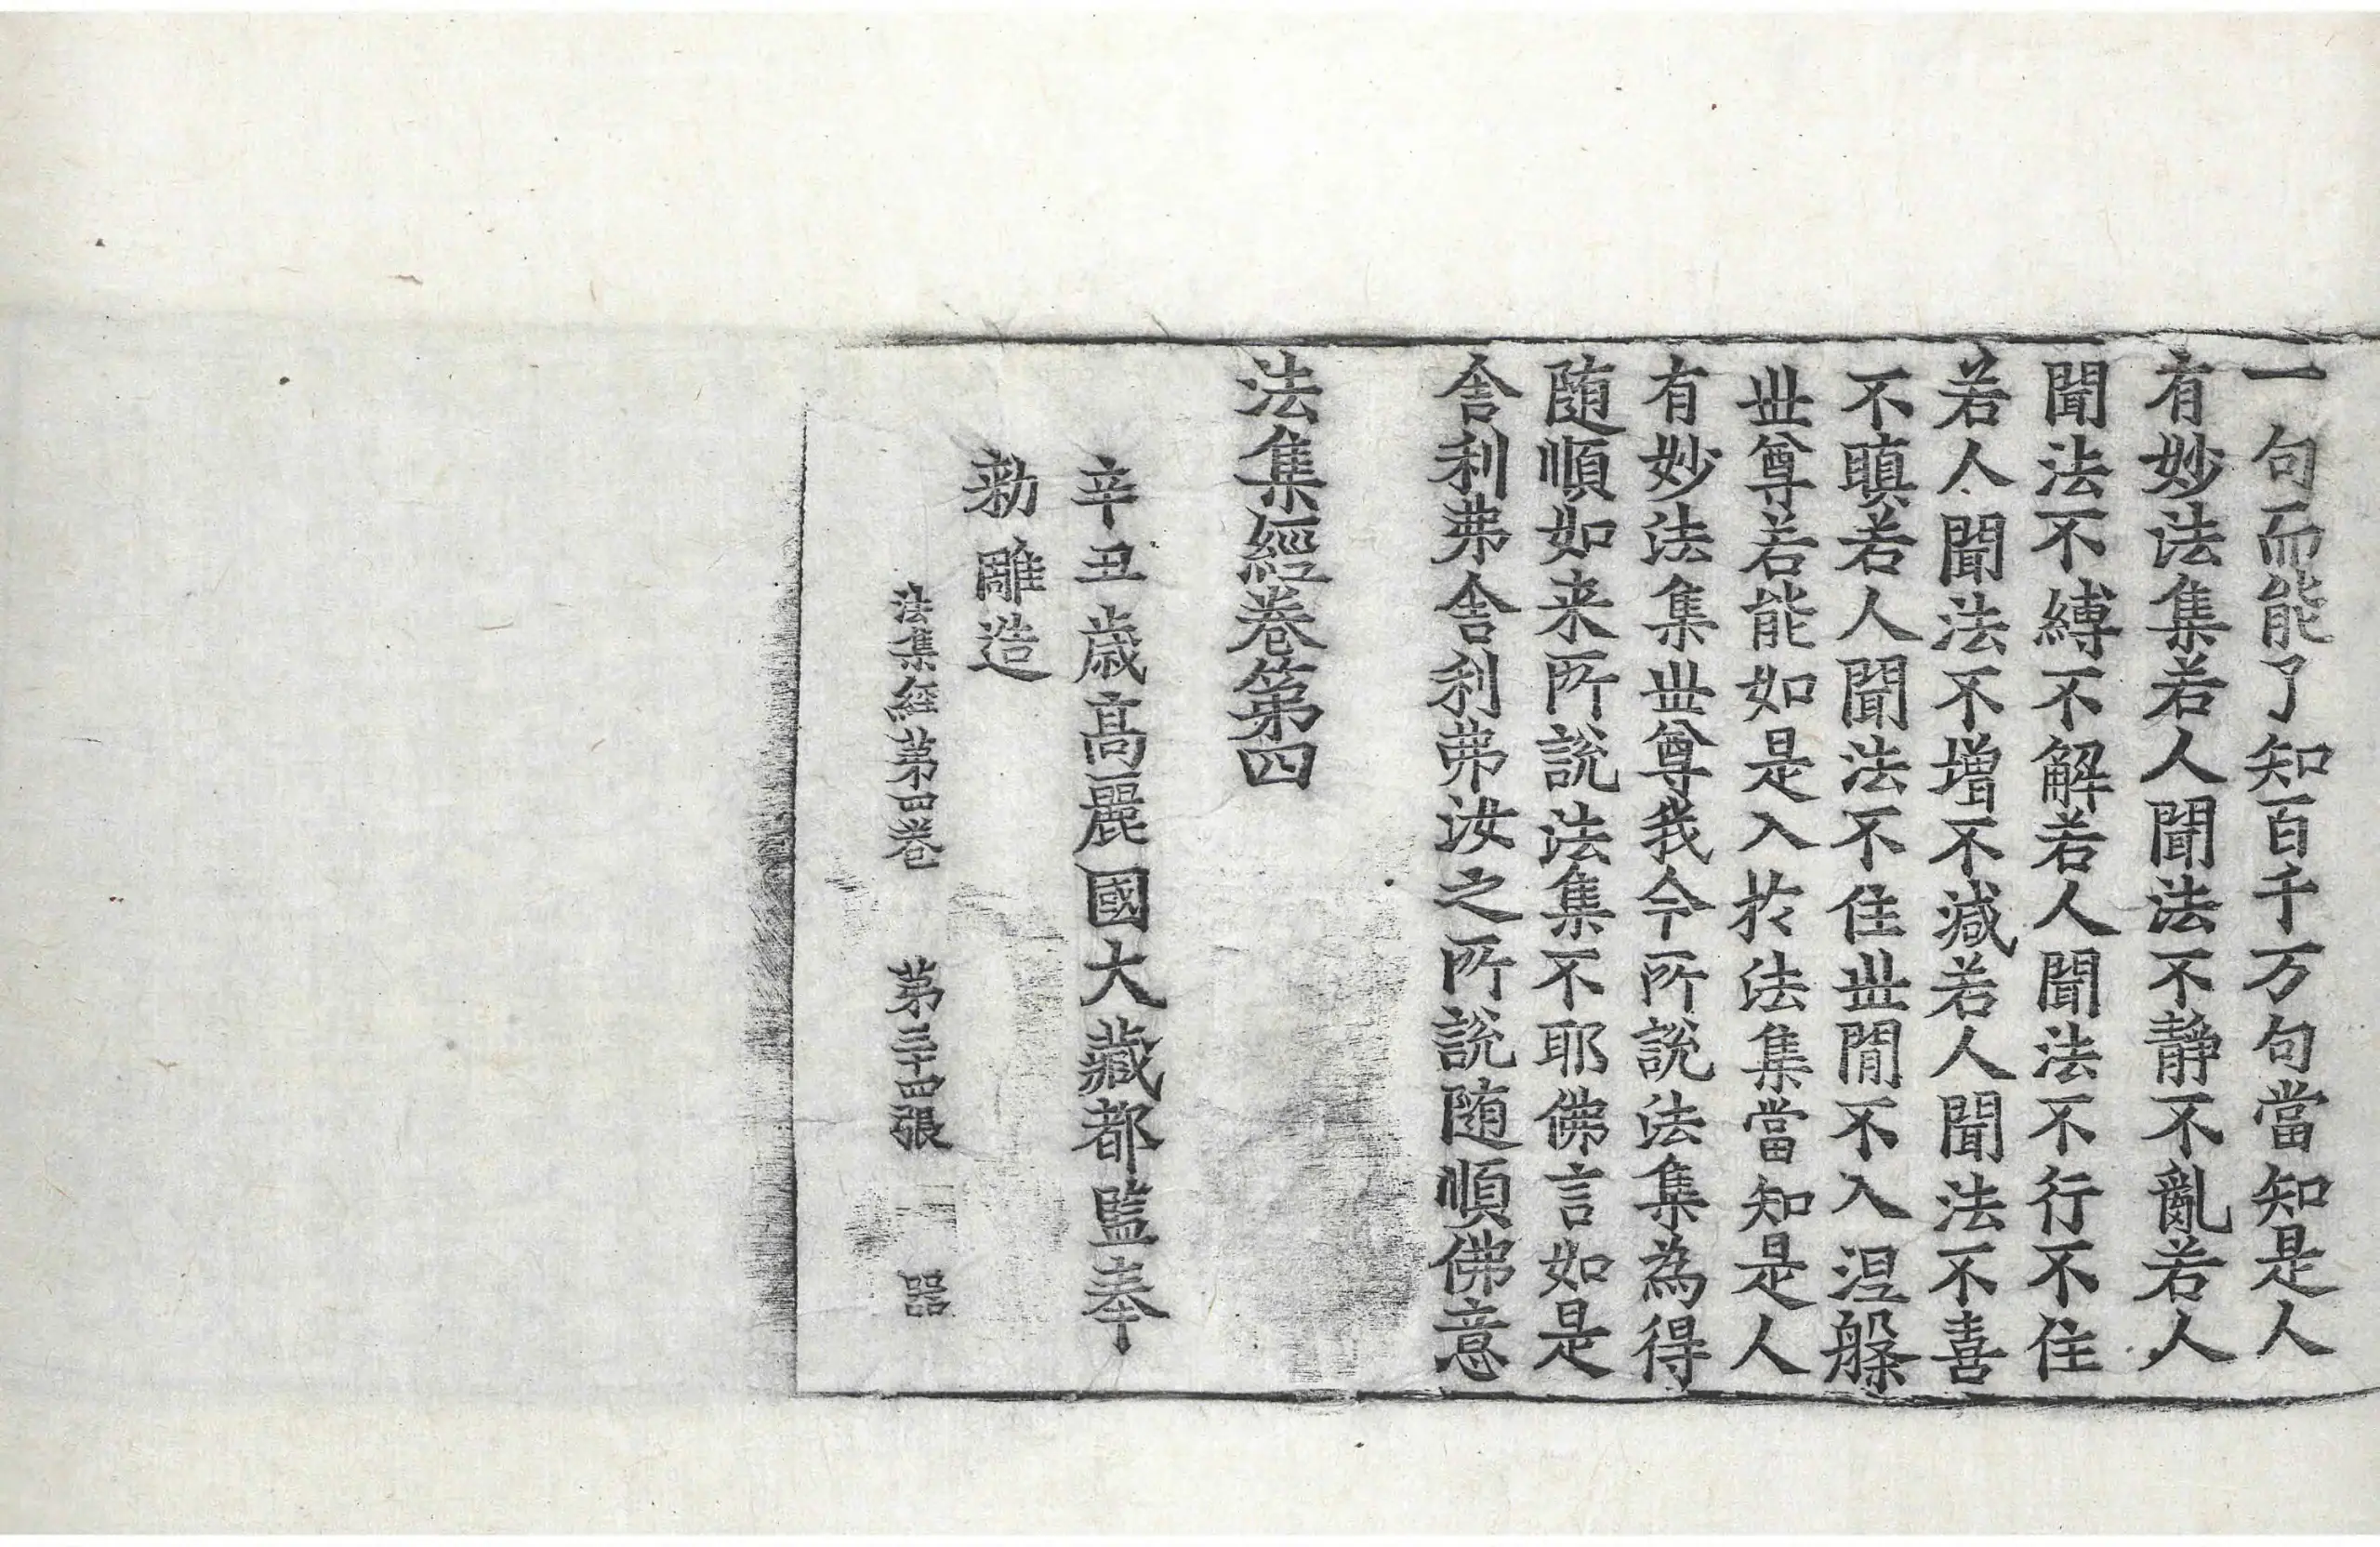 一句而能了知百千万句當知是人
有妙法集若人聞法不靜不亂若人
聞法不縛不解若人聞法不行不住
若人聞法不增不減若人聞法不喜
不瞋若人聞法不住世閒不入涅槃
世尊若能如是入於法集當知是人
有妙法集世尊我今所說法集為得
随順如来所說法集不耶佛言如是
舎利弗舎利弗汝之所說随順佛意
法集經卷第四
辛丑歲高麗國大藏都監奉
勅雕造
法集經第四卷 第三十四張 器